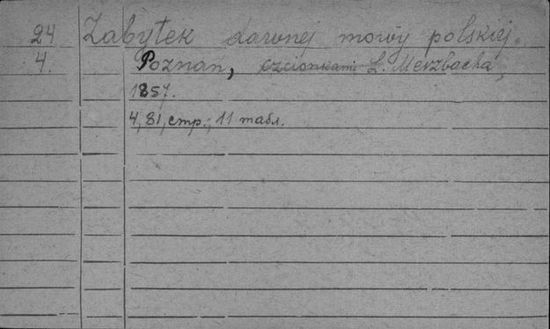 24 Zabytek dawnej mowy polskiej.
4. Poznań, czcionkami L. Merzbacha,
1857.
4, 81, стр.; 11 табл.